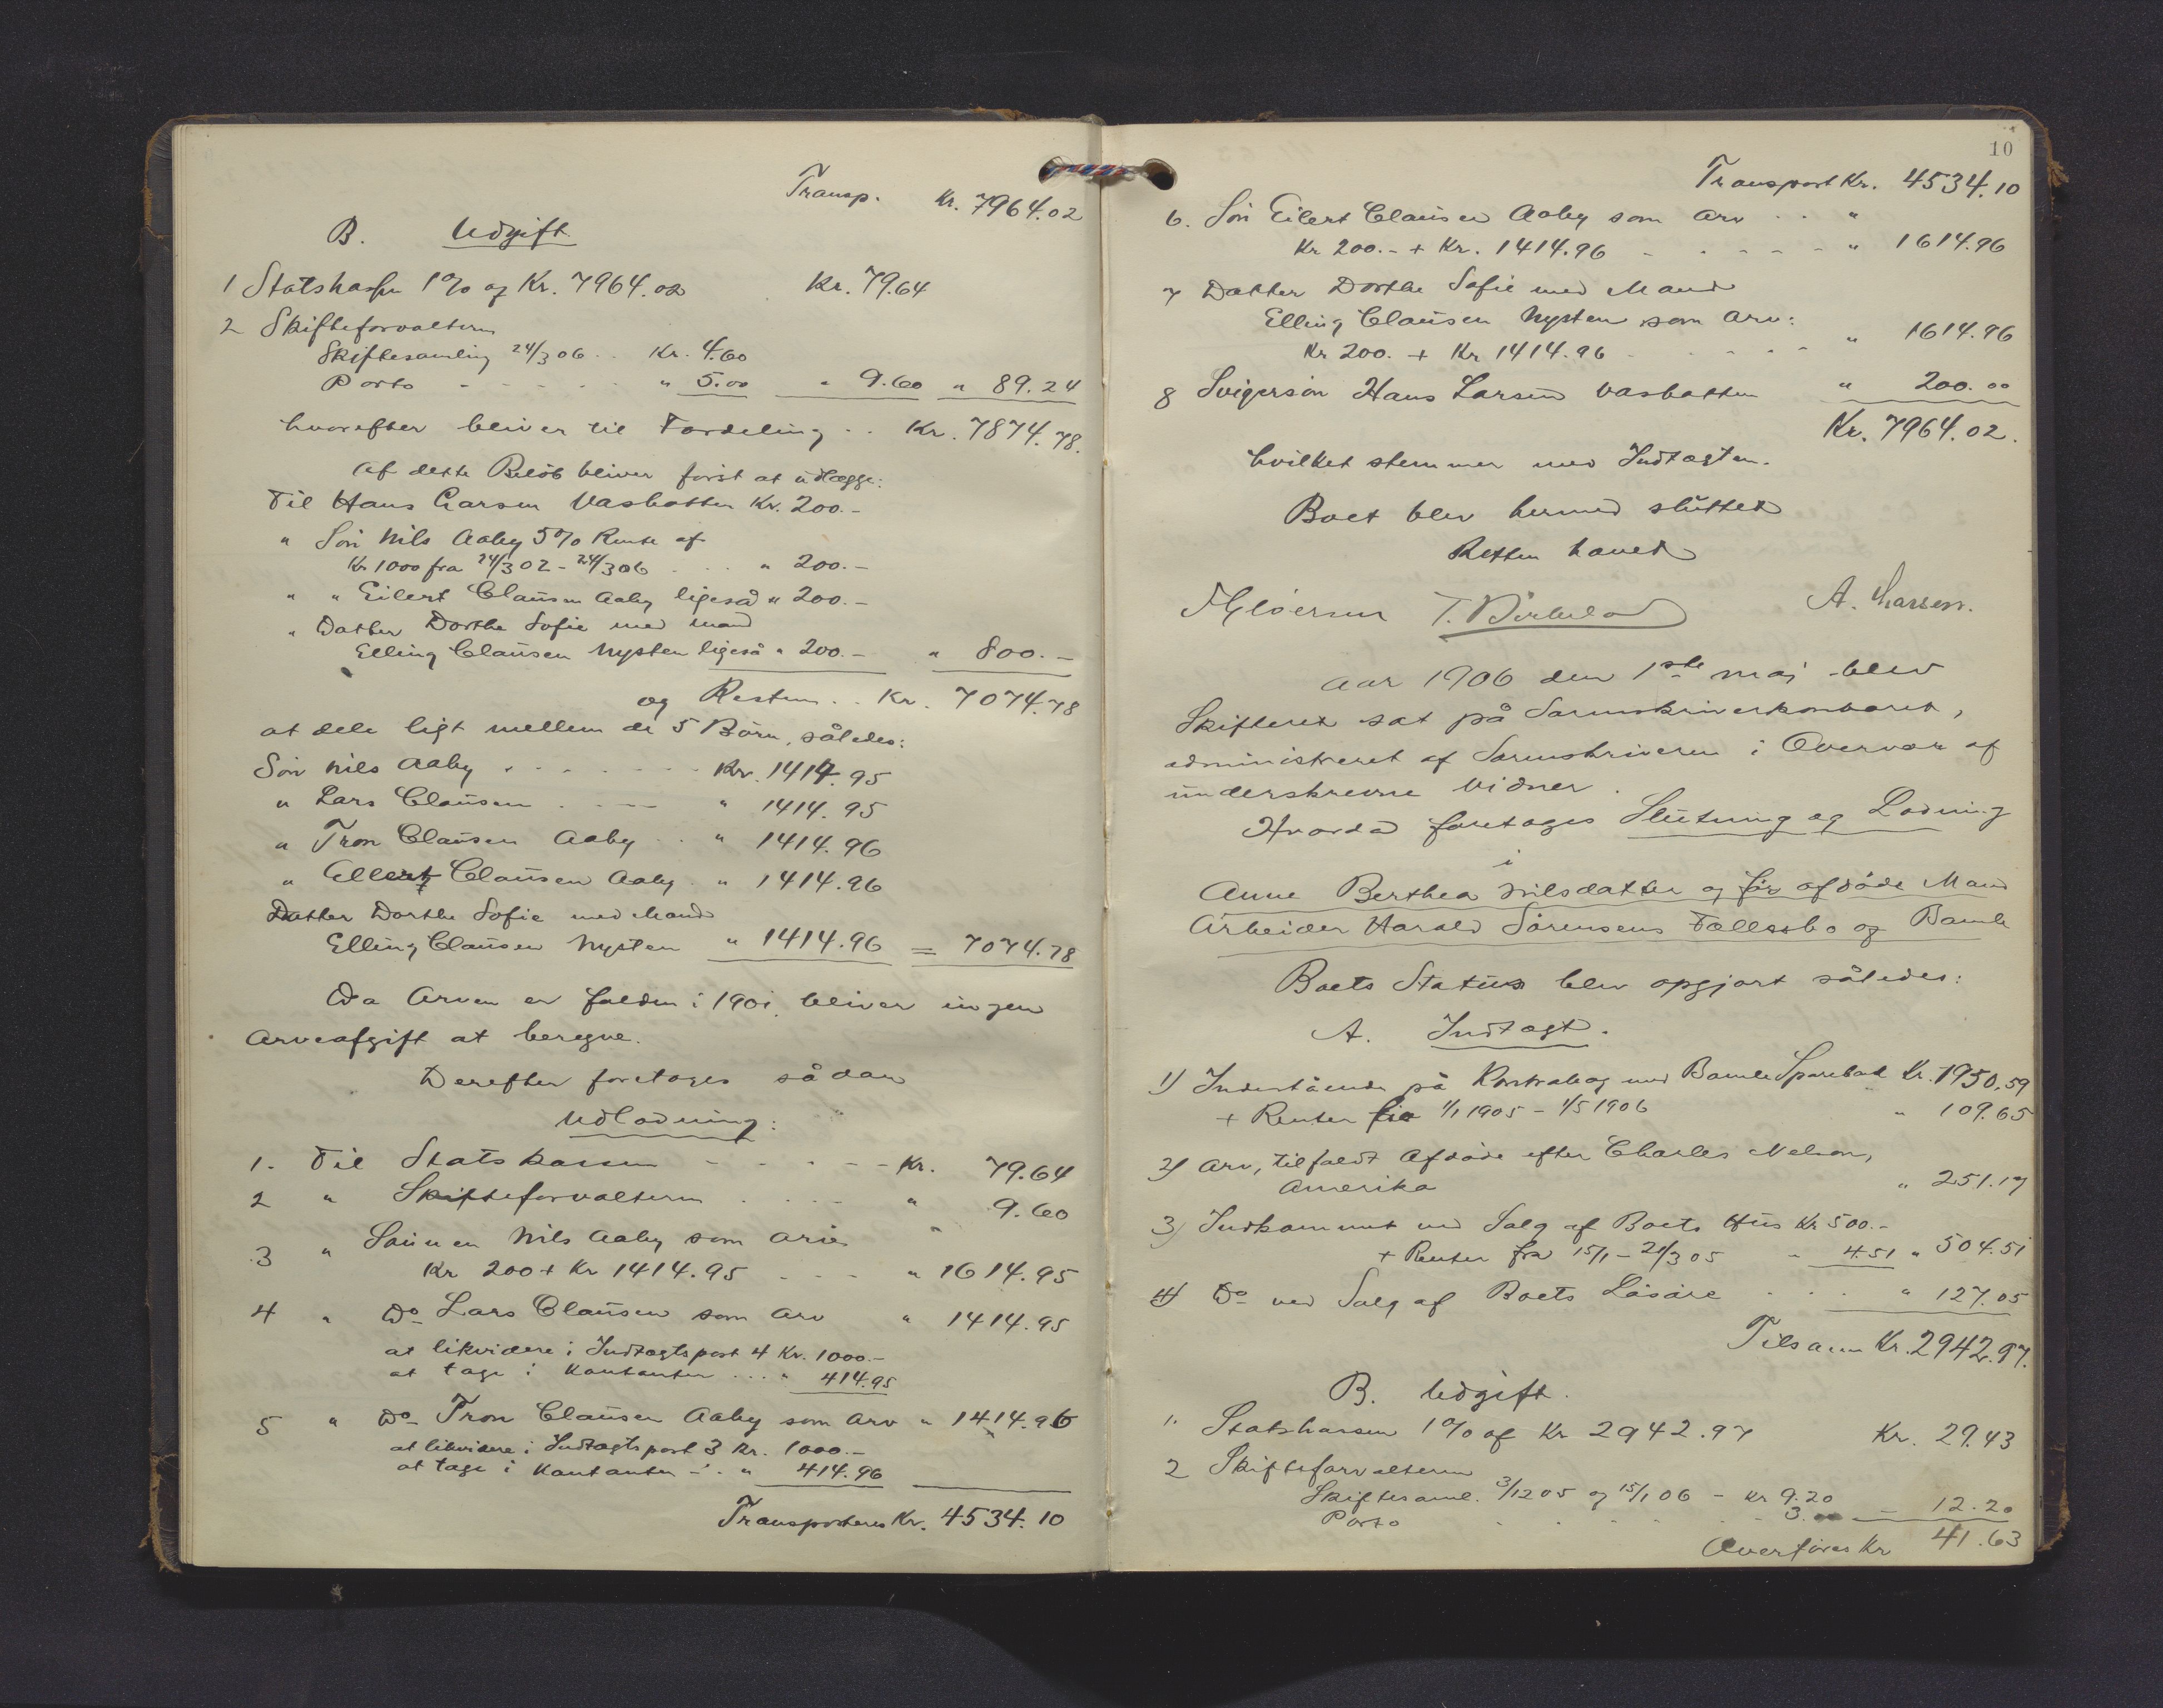 Transp. Kr. 7964.02
B. Udgift
1 Statskassen 1% af Kr. 7964.02 Kr. 79.64
2 Skifteforvalteren
Skiftesamling 24/3 06 .. Kr. 4.60
Porto - - - - - " 5.00 " 9.60 " 89.24
hvorefter bliver til Fordeling .. Kr. 7874.78.
Af dette Beløb bliver først at udlægge:
Til Hans Larsen Vasbotten Kr. 200.-
" Søn Nils Aaby 5% Rente af
Kr 1000 fra 24/3 02 - 24/3 06 . . . " 200.-
" " Eilert Clausen Aaby ligeså " 200.-
" Datter Dorthe Sofie med Mand
Elling Clausen Nysten ligeså " 200.- " 800.-
og Resten .. Kr. 7074.78
at dele ligt mellem de 5 Børn, således:
Søn Nils Aaby . - - - - - - Kr. 1414.95
" Lars Clausen . - - - " 1414.95
" Tron Clausen Aaby . . " 1414.96
" Eilert Clausen Aaby . " 1414.96
Datter Dorthe Sofie med Mand
Elling Clausen Nysten " 1414.96 = 7074.78
Da Arven er falden i 1901, bliver ingen
Arveafgift at beregne.
Derefter foretoges sådan
Udlodning:
1. Til Statskassen - - - - - Kr. 79.64
2 " Skifteforvalteren . . . . " 9.60
3 " Sønnen Nils Aaby som Arv "
Kr 200 + Kr 1414.95 - - - " 1614.95
4 " Do Lars Clausen som Arv " 1414.95
at likvidere i Indtægtspost 4 Kr. 1000.-
at tage i Kontanter ... " 414.95
5 " Do Tron Clausen Aaby som Arv " 1414.96
at likvidere i Indtægtspost 3 Kr. 1000.-
at tage i Kontanter - . " 414.96
Transporteres Kr. 4534.10
10
Transport Kr. 4534.10
6. Søn Eilert Clausen Aaby som Arv . . "
Kr 200.- + Kr. 1414.96 - - - - - " 1614.96
7 Datter Dorthe Sofie med Mand
Elling Clausen Nysten som Arv:
Kr 200. + Kr 1414.96 - - - - - " 1614.96
8 Svigersøn Hans Larsen Vasbotten " 200.00
Kr. 7964.02.
hvilket stemmer med Indtægten.
Boet blev hermed sluttet
Retten hævet
T. Birkeland A. Larsen.
Aar 1906 den 1ste Maj blev
Skifteret sat på Sorenskriverkontoret,
administreret af Sorenskriveren i Overvær af
underskrevne Vidner.
Hvorda foretoges Slutning og Lodning
i
Anne Berthea Nilsdatter og før afdøde Mand
Arbeider Harald Sørensens Fællesbo af Bamle
Boets Status blev opgjort således:
A. Indtægt.
1) Indestående på Kontrabog med Bamle Sparebank Kr. 1950.59
+ Renter fra 1/1 1905 - 1/5 1906 " 109.65
2) Arv, tilfaldt Afdøde efter Charles Nelson,
Amerika " 251.17
3) Indkommet ved Salg af Boets Hus Kr 500.-
+ Renter fra 15/1 - 21/3 05 " 4.51 " 504.51
4) Do ved Salg af Boets Løsøre . . . " 127.05
Tilsam Kr. 2942.97.
B. Udgift.
1. Statskassen 1% af Kr 2942.97 Kr. 29.43
2 Skifteforvalteren
Skiftesaml. 3/12 05 og 15/1 06 - Kr 9.20
Porto - - - - - 3.00 - 12.20
Overføres Kr 41.63